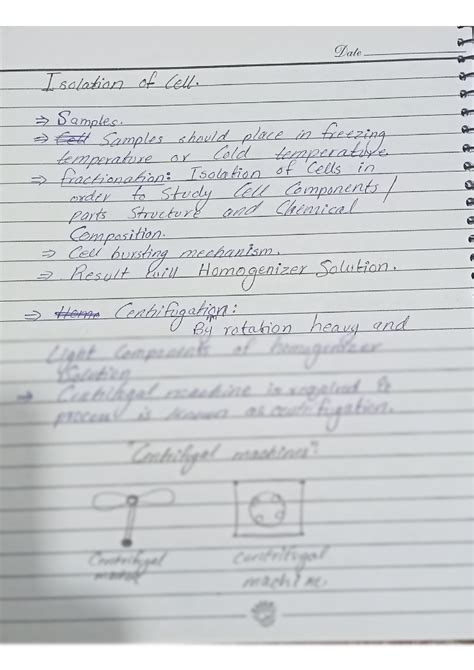 Date
Isolation of Cell.
⇒ Samples.
⇒ Cell Samples should place in freezing
temperature or Cold temperature
⇒ fractionation: Isolation of Cells in
order to Study Cell Components /
parts Structure and Chemical
Composition.
⇒ Cell bursting mechanism.
⇒ Result will Homogenizer Solution.
⇒ Homo Centrifugation:
By rotation heavy and
Light Components of homogenizer
Solution
⇒ Centrifugal machine is required &
process is known as centrifugation.
"Centrifugal machines":
Centrifugal centrifugal
machine